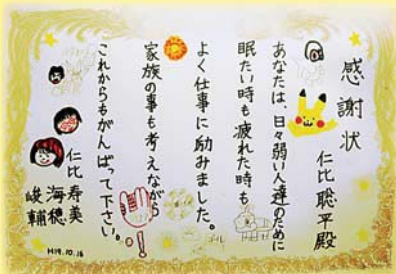 感謝状
仁比聡平殿
あなたは、日々弱い人達のために
眠たい時も疲れた時も
よく仕事に励みました。
家族の事も考えながら
これからもがんばって下さい。
仁比寿美
海穂
峻輔
H19.10.16